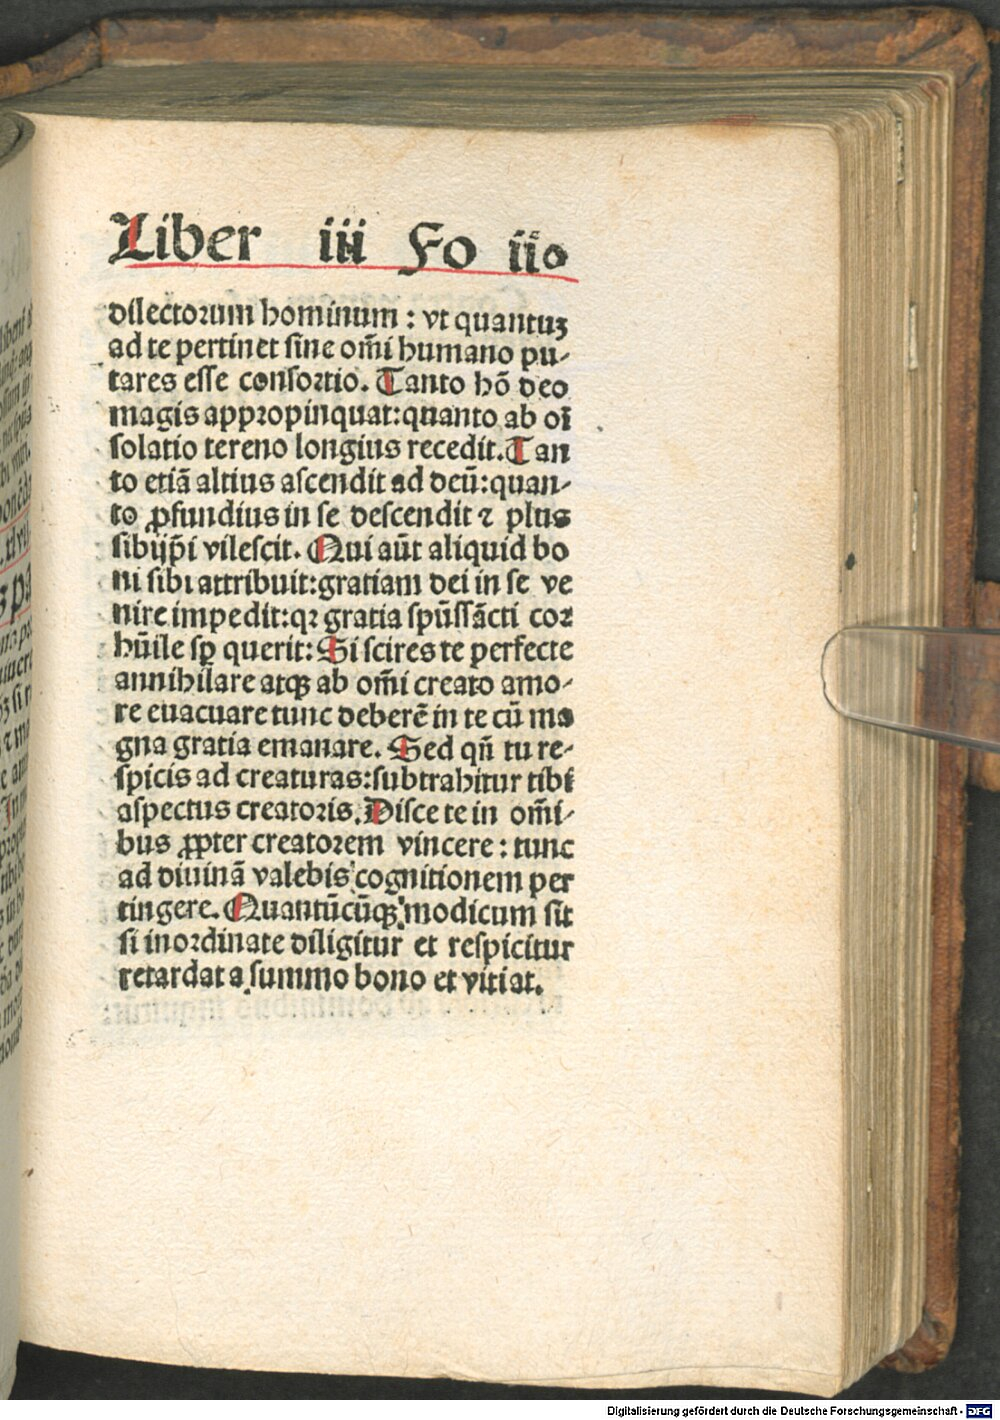 Liber iii Fo iio
dilectorum hominum : vt quantuȝ
ad te pertinet sine om̄i humano pu⸗
tares esse consortio. Tanto hō deo
magis appropinquat: quanto ab oī
solatio tereno longius recedit. Tan
to etiā altius ascendit ad deū: quan⸗
to ꝓfundius in se descendit ⁊ plus
sibijp̄i vilescit. Qui aūt aliquid bo
ni sibi attribuit: gratiam dei in se ve
nire impedit: qꝛ gratia spūssācti cor
hūile sꝑ querit: Si scires te perfecte
annihilare atqꝫ ab om̄i creato amo⸗
re euacuare tunc deberē in te cū ma
gna gratia emanare. Sed qn̄ tu re⸗
spicis ad creaturas: subtrahitur tibi
aspectus creatoris. Disce te in om̄i⸗
bus ꝓpter creatorem vincere : tunc
ad diuinā valebis cognitionem per
tingere. Quantūcūqꝫ modicum sit
si inordinate diligitur et respicitur
retardat a summo bono et vitiat.
Digitalisierung gefördert durch die Deutsche Forschungsgemeinschaft - DFG